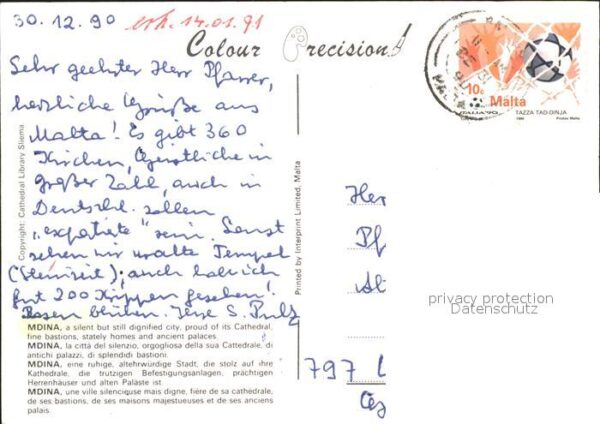 30.12.90 erh. 14.01.91
Colour Precision
Sehr geehrter Herr Pfarrer,
herzliche Grüße aus
Malta! Es gibt 360
Kirchen, Geistliche in
großer Zahl, auch in
Deutschl. sollen
sein. Sonst
sehen wir uralte Tempel
(Steinzeit); auch hab ich
fast 200 Krippen gesehen!
Rosen blühen. S.
Copyright: Cathedral Library Sliema
Printed by Interprint Limited, Malta
MDINA, a silent but still dignified city, proud of its Cathedral,
fine bastions, stately homes and ancient palaces.
MDINA, la città del silenzio, orgogliosa della sua Cattedrale, di
antichi palazzi, di splendidi bastioni.
MDINA, eine ruhige, altehrwürdige Stadt, die stolz auf ihre
Kathedrale, die trutzigen Befestigungsanlagen, prächtigen
Herrenhäuser und alten Paläste ist.
MDINA, une ville silenciguse mais digne, fière de sa cathédrale,
de ses bastions, de ses maisons majestueuses et de ses anciens
palais.
10c Malta
ITALIA'90 TAZZA TAD-DINJA
1990 Printex Malta
Her
Pf
privacy protection
Datenschutz
797